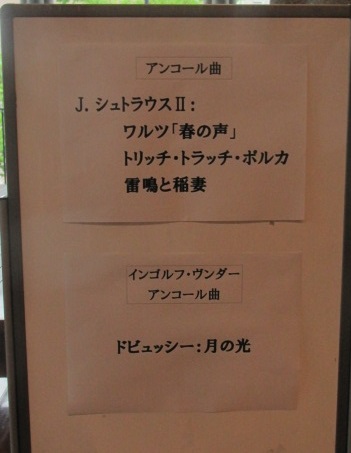 アンコール曲
J. シュトラウスⅡ:
ワルツ「春の声」
トリッチ・トラッチ・ポルカ
雷鳴と稲妻
インゴルフ・ヴンダー
アンコール曲
ドビュッシー:月の光